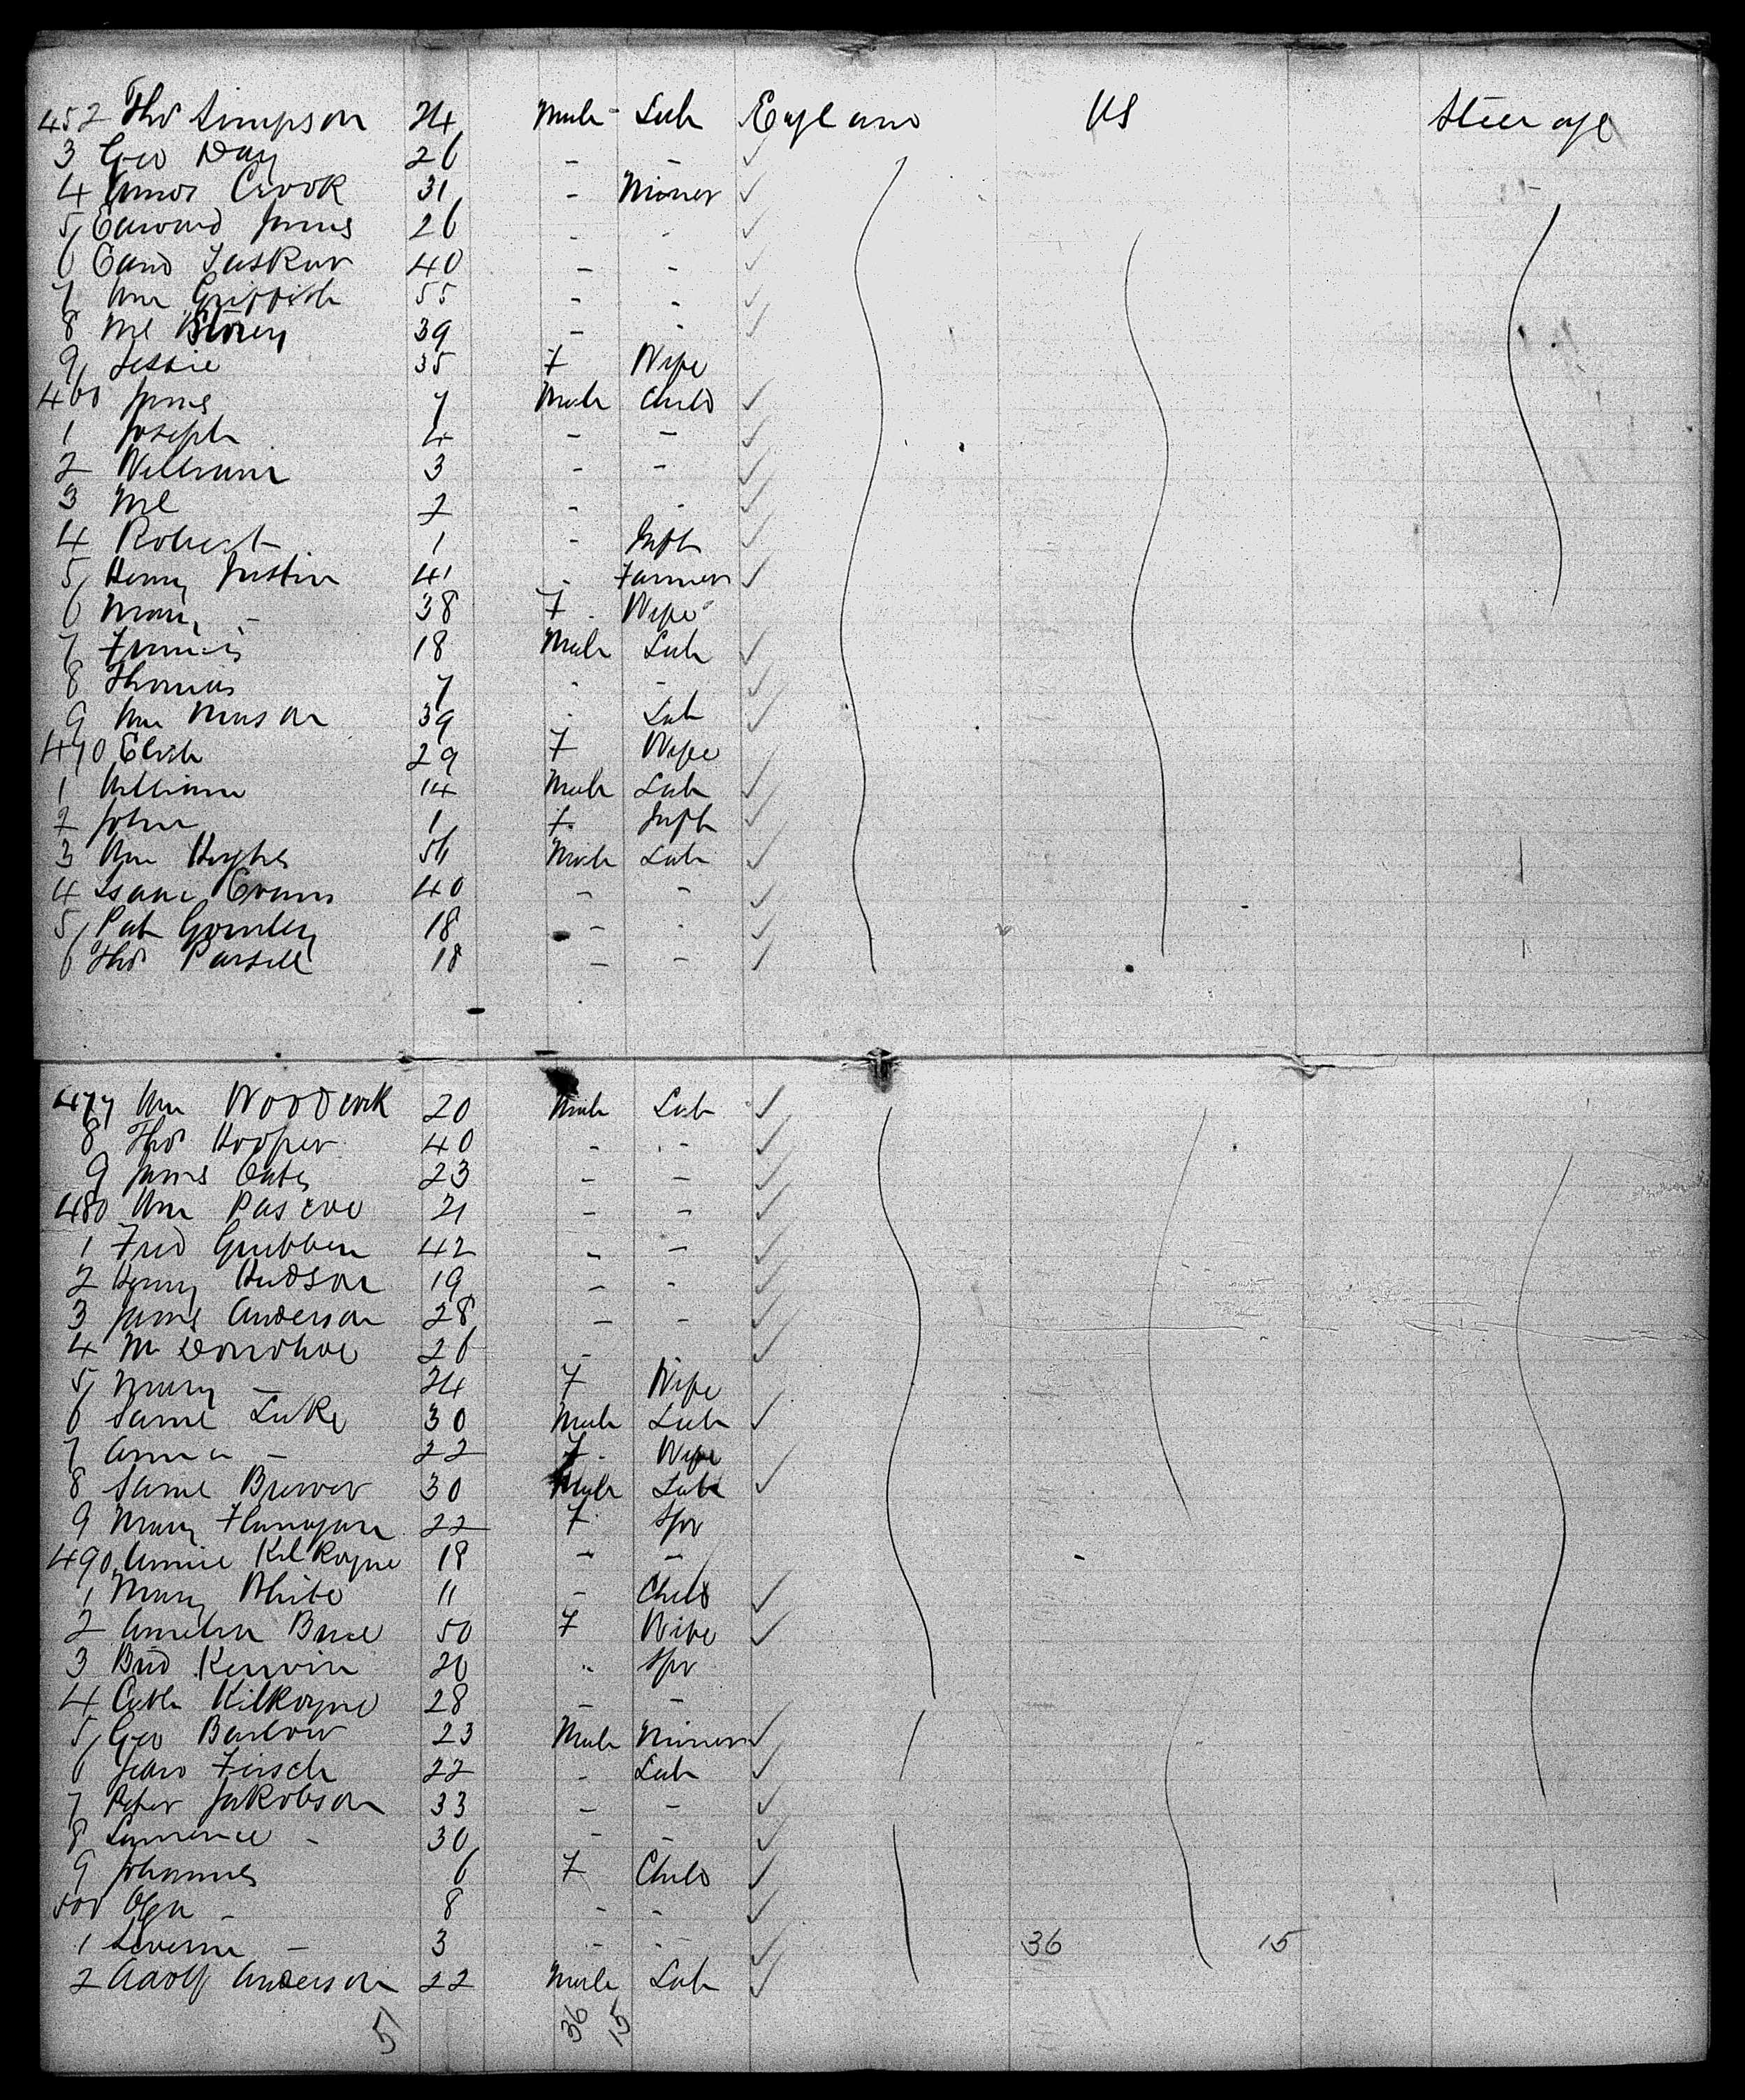 452 Thos Simpson 24 Male Lab England US Steerage
3 Geo Day 26 - -
4 Amos Crook 31 - Miner
5 Edward James 26 - -
6 Taskar 40 - -
7 Wm Griffith 55 - -
8 Ml Storey 39 - -
9 Jessie 35 F Wife
460 James 7 Male Child
1 Joseph 4 - -
2 William 3 - -
3 Ml 2 - -
4 Robert 1 - Inft
5 Henry Justin 41 - Farmer
6 Mary - 38 F Wife
7 Francis 18 Male Lab
8 Thomas 7 - -
9 Wm Mason 39 - Lab
470 Elizh 29 F Wife
1 William 14 Male Lab
2 John 1 F Inft
3 Wm Hughes 56 Male Lab
4 Isaac Evans 40 - -
5 Pat Gormley 18 - -
6 Thos Parsell 18 - -
477 Wm Woodcock 20 Male Lab
8 Thos Hooper 40 - -
9 James Oates 23 - -
480 Wm Pascoe 21 - -
1 Fred Grubben 42 - -
2 Henry Hudson 19 - -
3 James Anderson 28 - -
4 M Donohoe 26 - -
5 Mary - 24 F Wife
6 Saml Luke 30 Male Lab
7 Anna - 22 F Wife
8 Saml Brewer 30 Male Lab
9 Mary Flanagan 22 F Spr
490 Annie Kilkoyne 18 - -
1 Mary White 11 - Child
2 Amelia Brice 50 F Wife
3 Brid Kerwin 20 " Spr
4 Cath Kilkoyne 28 - -
5 Geo Barlow 23 Male Miner
6 Firsch 22 - Lab
7 Peter Jakobson 33 - -
8 Laurence - 30 - -
9 Johannes 6 F Child
500 Olga - 8 - -
1 - 3 - - 36 15
2 Adolf Anderson 22 Male Lab
5 36 15